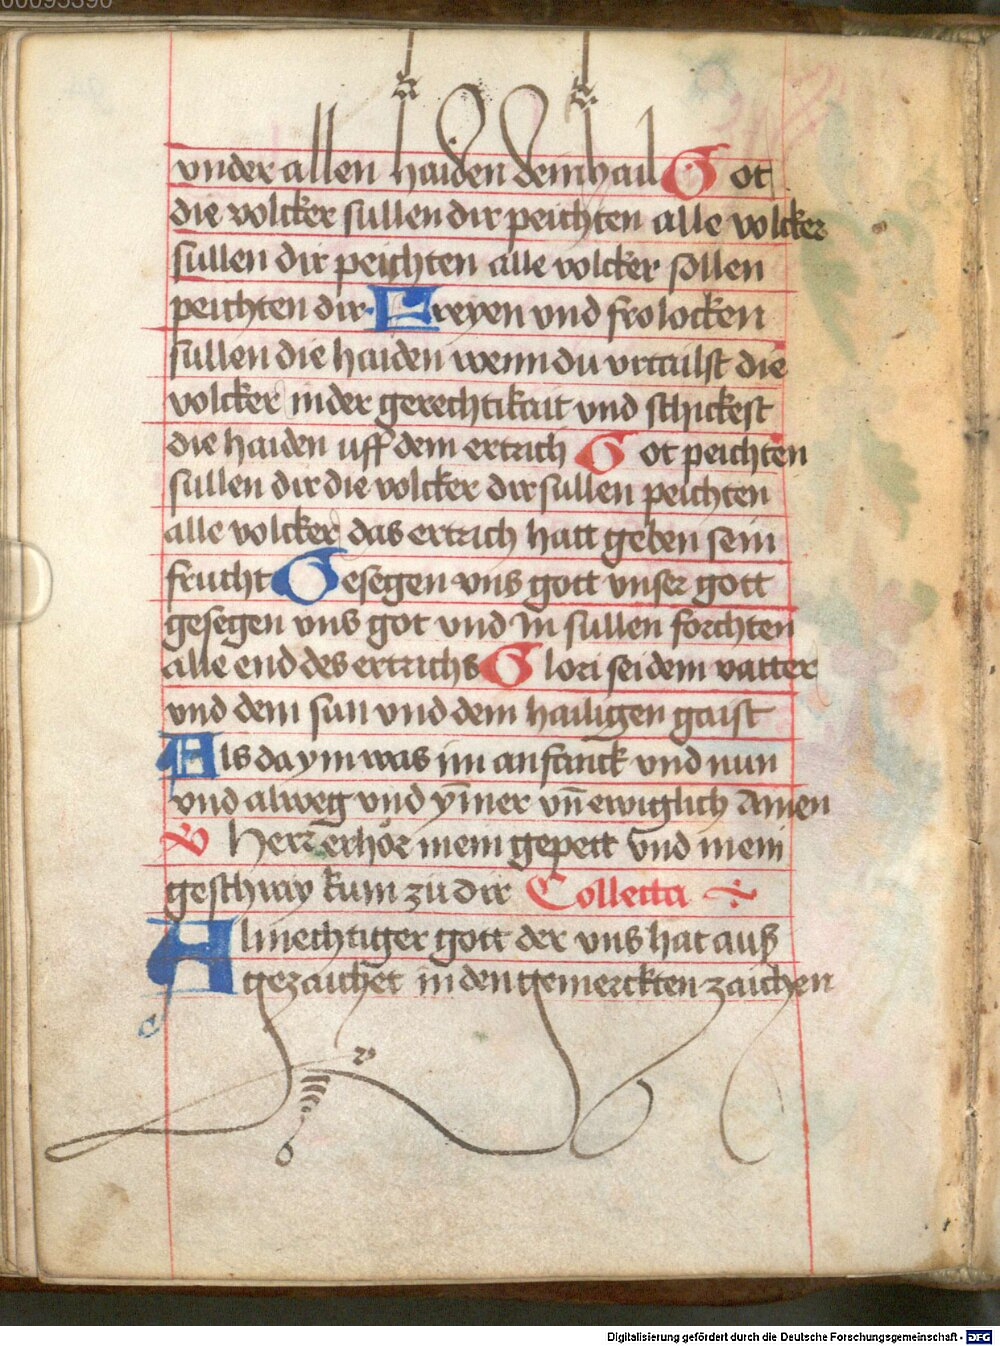 vnder allen haiden dein hail Got
die volcker sullen dir peichten alle volcker
sullen dir peichten alle volcker sollen
peichten dir. Freyen vnd frolocken
sullen die haiden wenn du vrtailst die
volcker in der gerechtikait vnd schickest
die haiden uff dem ertrich Got peichten
sullen dir die volcker dir sullen peichten
alle volcker das ertrich hatt geben sein
frucht Gesegen vns gott vnser gott
gesegen vns got vnd in sullen forchten
alle end des ertrichs Glori sei dem vatter
vnd dem sun vnd dem hailigen gaist
Als da ym was im anfanck vnd nun
vnd alweg vnd ym̄er vn̄ ewiglich Amen
V Herr erhör mein gepett vnd mein
geschray kum zu dir Collecta
Almechtiger gott der vns hat auß
gezaichet in den gemerckten zaichen
Digitalisierung gefördert durch die Deutsche Forschungsgemeinschaft - DFG